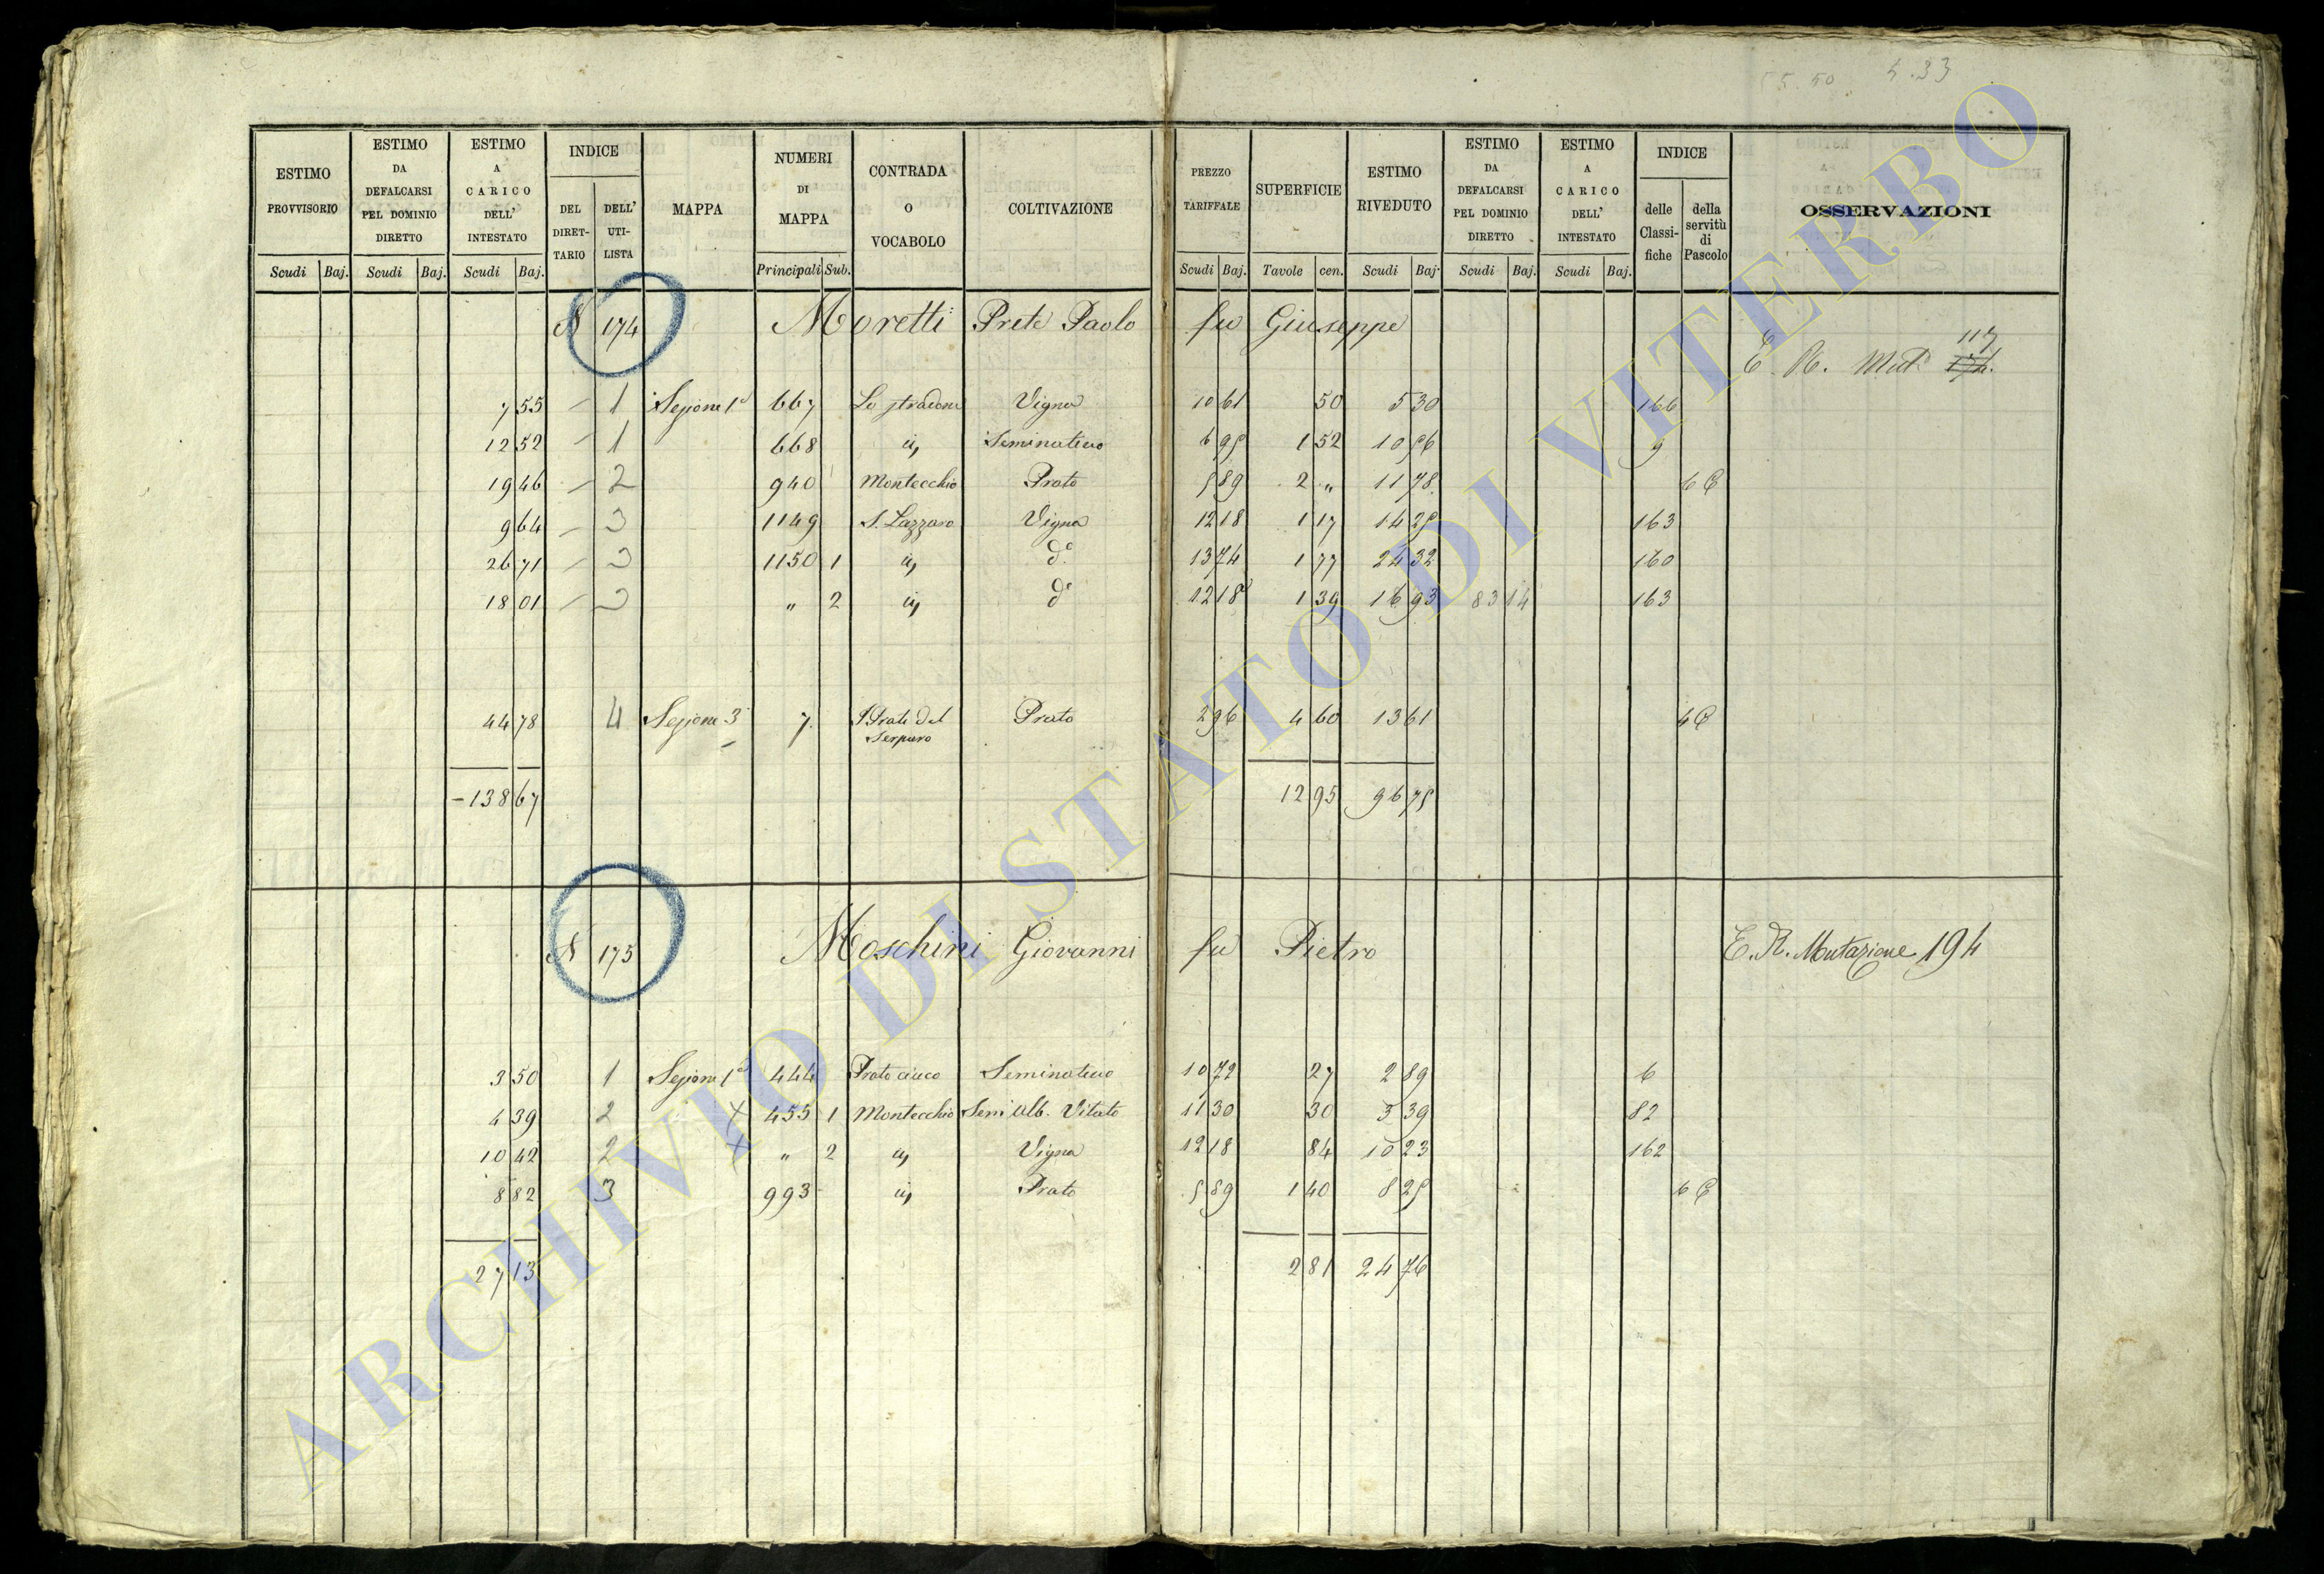 5.33
ESTIMO PROVVISORIO
ESTIMO DA DEFALCARSI PEL DOMINIO DIRETTO
ESTIMO A CARICO DELL' INTESTATO
INDICE
DEL DIRET-TARIO
DELL' UTI-LISTA
MAPPA
NUMERI DI MAPPA
CONTRADA O VOCABOLO
COLTIVAZIONE
PREZZO TARIFFALE
SUPERFICIE
ESTIMO RIVEDUTO
ESTIMO DA DEFALCARSI PEL DOMINIO DIRETTO
ESTIMO A CARICO DELL' INTESTATO
INDICE
delle Classi-fiche
della servitù di Pascolo
OSSERVAZIONI
Scudi Baj. Scudi Baj. Scudi Baj. Principali Sub. Scudi Baj. Tavole cen. Scudi Baj. Scudi Baj. Scudi Baj.
N 174 Moretti Prete Paolo fu Giuseppe
117
E. R. Mut. 174.
7 55 1 Sezione 1a 667 Lo stradone Vigna 10 61 50 5 30 166
12 52 1 668 id. Seminativo 6 95 1 52 10 56 9
19 46 2 940 Montecchio Prato 5 89 2 „ 11 78 6 C
9 64 3 1149 S. Lazzaro Vigna 12 18 1 17 14 25 163
26 71 3 1150 1 id. do 13 74 1 77 24 32 160
18 01 3 „ 2 id. do 12 18 1 39 16 93 83 14 163
44 78 4 Sezione 3 7. I Prati del Prato 2 96 4 60 13 61 4 C
Serpuro
-138 67 12 95 96 75
N 175 Moschini Giovanni fu Pietro E. R. Mutazione 194
3 50 1 Sezione 1a 444 Prato cieco Seminativo 10 72 27 2 89 6
4 39 2 x 455 1 Montecchio Sem Alb. Vitato 11 30 30 3 39 82
10 42 2 x „ 2 id. Vigna 12 18 84 10 23 162
8 82 3 993 id. Prato 5 89 1 40 8 25 6 C
27 13 2 81 24 76
ARCHIVIO DI STATO DI VITERBO